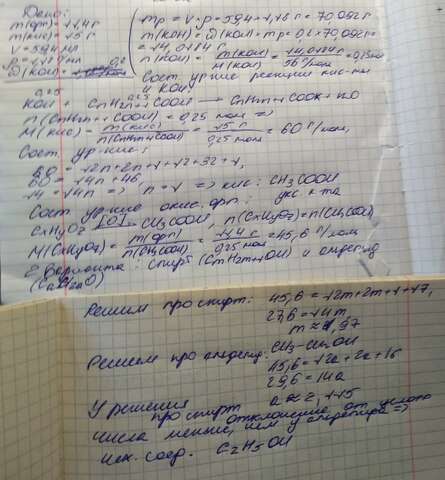 Дано:
m(орг) = 11,4 г
m(кис) = 15 г
V = 59,4 мл
mр = V·ρ = 59,4 · 1,18 г = 70,092 г
m(КОН) = ω(КОН) · mр = 0,2 · 70,092 г
= 14,0184 г
n(КОН) = m(КОН) / M(КОН) = 14,0184 г / 56 г/моль = 0,25 моль
Сост. ур-ние реакции кис-ты
и КОН
0,25 0,25
КОН + CnH2n+1COOH → CnH2n+1COOK + H2O
n(CnH2n+1COOH) = 0,25 моль =>
M(кис) = m(кис) / n(CnH2n+1COOH) = 15 г / 0,25 моль = 60 г/моль
Сост. ур-ние:
60 = 12n + 2n + 1 + 12 + 32 + 1,
60 = 14n + 46
14 = 14n => n = 1 => кис: CH3COOH
Сост. ур-ние окис. орг.: укс. к-та
CxHyOz [O]→ CH3COOH, n(CxHyOz) = n(CH3COOH)
M(CxHyOz) = m(орг) / n(CH3COOH) = 11,4 г / 0,25 моль = 45,6 г/моль
2 варианта: спирт (CmH2m+1OH) и альдегид
(CaH2aO)
Решим про спирт: 45,6 = 12m + 2m + 1 + 17,
27,6 = 14m
m ≈ 1,97
CH3-CH2OH
Решаем про альдегид: 45,6 = 12a + 2a + 16
29,6 = 14a
a ≈ 2,115
У решения
про спирт отклонение от целого
числа меньше, чем у альдегида =>
иск. соед. C2H5OH